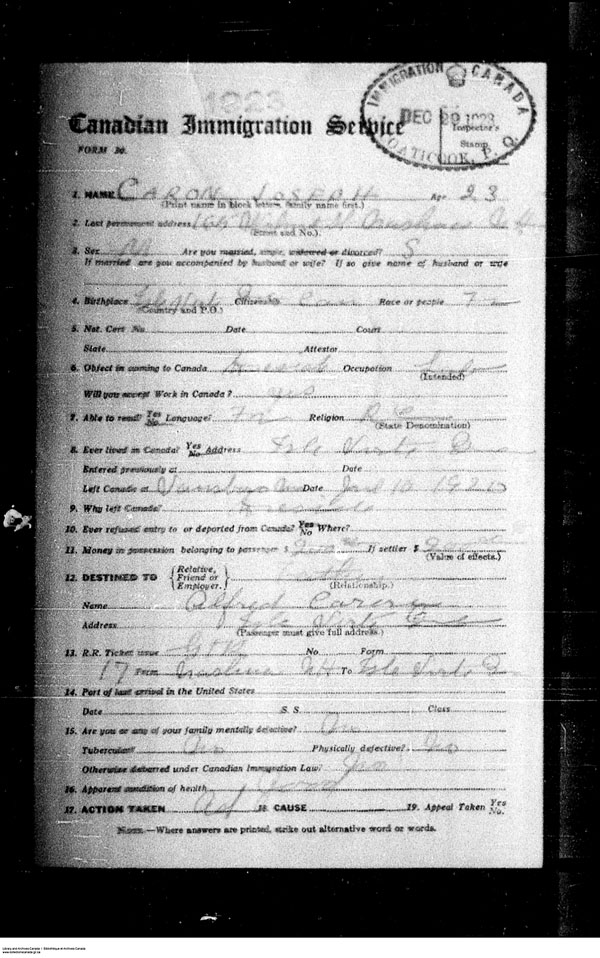 1923
Canadian Immigration Service
FORM 30.
IMMIGRATION CANADA
DEC 29 1923
Inspector's
Stamp.
COATICOOK, P. Q.
1. NAME CARON JOSEPH Age 23
(Print name in block letters, family name first.)
2. Last permanent address 165
(Street and No.)
3. Sex M Are you married, single, widowed or divorced? S
If married are you accompanied by husband or wife? If so give name of husband or wife
4. Birthplace Isle Vert Que Citizenship Can Race or people F
(Country and P.O.)
5. Nat. Cert No. Date Court
State Attestor
6. Object in coming to Canada Occupation
(Intended)
Will you accept Work in Canada? yes
7. Able to read? Yes No Language? Fr Religion R C
(State Denomination)
8. Ever lived in Canada? Yes No Address Isle Verte Que
Entered previously at Date
Left Canada at Vanceboro Me Date 10 192
9. Why left Canada?
10. Ever refused entry to or deported from Canada? Yes No Where?
11. Money in possession belonging to passenger $ If settler $
(Value of effects.)
12. DESTINED TO {Relative, Friend or Employer.} Father
(Relationship.)
Name Alfred Caron
Address Isle Verte Que
(Passenger must give full address.)
13. R.R. Ticket issue No Form
17 From Nashua NH To Isle Verte Q
14. Port of last arrival in the United States
Date S. S. Class
15. Are you or any of your family mentally defective? No
Tubercular? No Physically defective? No
Otherwise debarred under Canadian Immigration Law? No
16. Apparent condition of health Good
17. ACTION TAKEN Ad 18. CAUSE 19. Appeal Taken Yes No.
NOTE.—Where answers are printed, strike out alternative word or words.
Library and Archives Canada / Bibliothèque et Archives Canada
www.collectionscanada.gc.ca